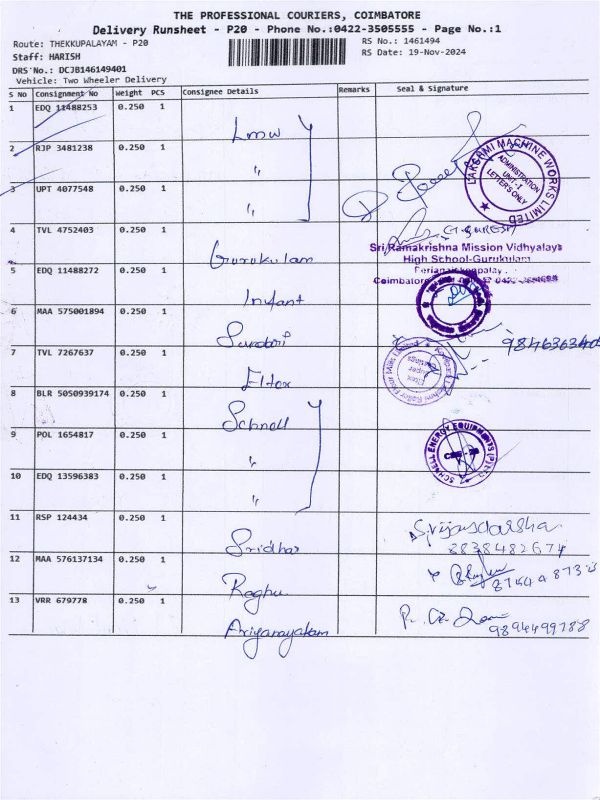 THE PROFESSIONAL COURIERS, COIMBATORE
Delivery Runsheet - P20 - Phone No.:0422-3505555 - Page No.:1
Route: THEKKUPALAYAM - P20 RS No.: 1461494
Staff: HARISH RS Date: 19-Nov-2024
DRS No.: DCJB146149401
Vehicle: Two Wheeler Delivery
S No Consignment No Weight PCS Consignee Details Remarks Seal & Signature
1 EDQ 11488253 0.250 1 Lmw
2 RJP 3481238 0.250 1 "
LAKSHMI MACHINE WORKS LIMITED
ADMINISTRATION
UNIT-1
LETTERS ONLY
3 UPT 4077548 0.250 1 "
4 TVL 4752403 0.250 1 Gurukulam
Sri Ramakrishna Mission Vidhyalaya
High School-Gurukulam
Coimbatore
5 EDQ 11488272 0.250 1 Infant
6 MAA 575001894 0.250 1 Sundari
7 TVL 7267637 0.250 1 Eltex
8 BLR 5050939174 0.250 1 Schnell
9 POL 1654817 0.250 1 "
SCHNELL ENERGY EQUIPMENTS (P) LTD
10 EDQ 13596383 0.250 1 "
11 RSP 124434 0.250 1 Sridhar
8838482674
12 MAA 576137134 0.250 1 Raghu
13 VRR 679778 0.250 1 Ariyanayakam
9894499788